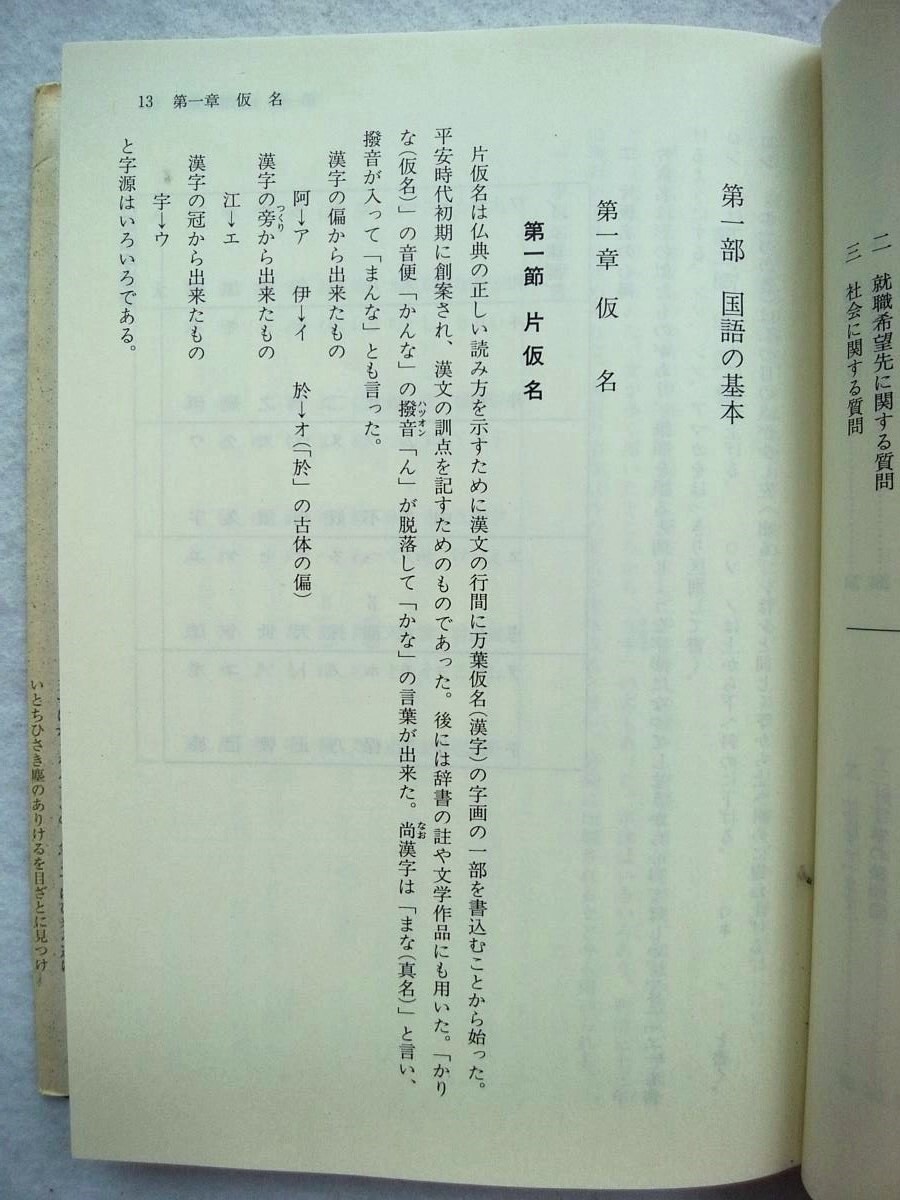 二　就職希望先に関する質問
三　社会に関する質問
13　第一章　仮　名
第一部　国語の基本
第一章　仮　名
第一節　片仮名
片仮名は仏典の正しい読み方を示すために漢文の行間に万葉仮名(漢字)の字画の一部を書込むことから始った。
平安時代初期に創案され、漢文の訓点を記すためのものであった。後には辞書の註や文学作品にも用いた。「かり
な(仮名)」の音便「かんな」の撥音ハツオン「ん」が脱落して「かな」の言葉が出来た。尚なお漢字は「まな(真名)」と言い、
撥音が入って「まんな」とも言った。
漢字の偏から出来たもの
阿→ア　伊→イ　於→オ(「於」の古体の偏)
漢字の旁つくりから出来たもの
江→エ
漢字の冠から出来たもの
宇→ウ
と字源はいろいろである。
いとちひさき塵のありけるを目ざとに見つけ